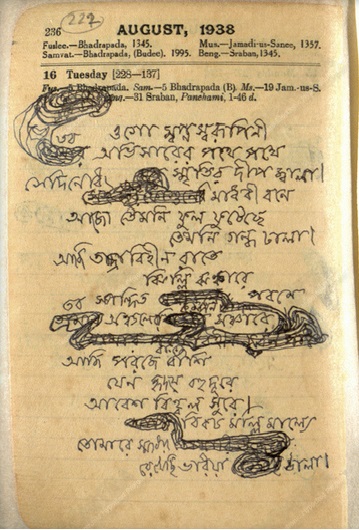 222
236 AUGUST, 1938
Fuslee.—Bhadrapada, 1345. Mus.—Jamadi-us-Sanee, 1357.
Samvat.—Bhadrapada, (Budee). 1995. Beng.—Sraban, 1345.
16 Tuesday [228—137]
Bhadrapada. Sam.—5 Bhadrapada (B). Ms.—19 Jam.-us-S.
—31 Sraban, Panchami, 1-46 d.
ওগো স্বপ্নস্বরূপিনী
তব
অভিসারের পথে পথে
স্মৃতির দীপ জ্বালা।
সেদিনেরি
মাধবী বনে
আজো তেমনি ফুল ফুটেছে
তেমনি গন্ধ ঢালা।
আজি তন্দ্রাবিহীন রাতে
ঝিল্লি ঝঙ্কারে
পবনে
তব
অঞ্চলের
সঞ্চারে
আজি পরজে বাঁশি
যেন হৃদয়ে বহুদূরে
আবেশ বিহ্বল সুরে।
বিকচ মল্লি মাল্যে
তোমারে স্মরিয়া
রেখেছি ভরিয়া ডালা।